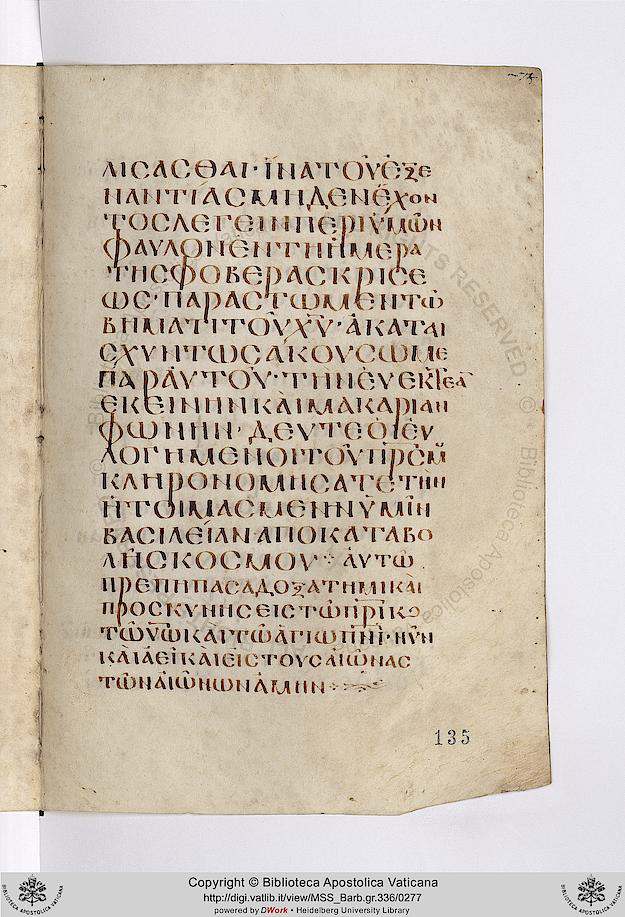 ΛΙСΑСΘΑΙ· ἵΝΑ ΤΟῪС ἘΞΕ
ΝΑΝΤΊΑС ΜΗΔΕΝ ἜΧΟΝ
ΤΟС ΛΕΓΕΙΝ ΠΕΡΙ ὙΜῶΝ
ΦΑΥΛΟΝ ΕΝ ΤΗ ἩΜΕΡΑ
ΤΗС ΦΟΒΕΡΑС ΚΡΙСΕ
ΩС· ΠΑΡΑСΤΩΜΕΝ ΤΩ
ΒΗΜΑΤΙ ΤΟΥ ΧΥ· ἈΚΑΤΑΙ
СΧΥΝΤΩС ἈΚΟΥСΩΜΕ
ΠΑΡ ΑΥΤΟΥ· ΤΗΝ ΕΥΕΚΤΕΑ
ΕΚΕΙΝΗΝ ΚΑΙ ΜΑΚΑΡΙΑΝ
ΦΩΝΗΝ· ΔΕΥΤΕ ΟΙ ΕΥ
ΛΟΓΗΜΕΝΟΙ ΤΟΥ ΠΡС Μ
ΚΛΗΡΟΝΟΜΗСΑΤΕ ΤΗΝ
ἩΤΟΙΜΑСΜΕΝΗΝ ὙΜΙΝ
ΒΑСΙΛΕΊΑΝ ΑΠΟ ΚΑΤΑΒΟ
ΛΗС ΚΟСΜΟΥ ⁘ ἈΥΤΩ
ΠΡΕΠΗ ΠΑСΑ ΔΟΞΑ ΤΗΜΙ ΚΑΙ
ΠΡΟСΚΥΝΗСΕΙС ΤΩ ΠΡΙ Κ
ΤΩ ΥΩ ΚΑΙ ΤΩ ΑΓΙΩ ΠΝΙ· ΝΥΝ
ΚΑΙ ἈΕΙ ΚΑΙ ΕΙС ΤΟΥС ΑΙΩΝΑС
ΤΩΝ ΑΙΩΝΩΝ ΑΜΗΝ
135
Copyright © Biblioteca Apostolica Vaticana
http://digi.vatlib.it/view/MSS_Barb.gr.336/0277
powered by DWork • Heidelberg University Library